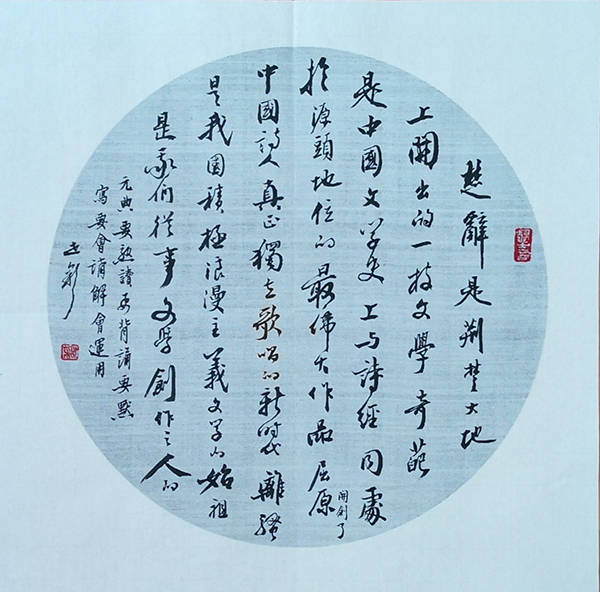 楚辭是荆楚大地
上開出的一枝文學奇葩
是中國文学史上与詩經同處
於源頭地位的最偉大作品屈原
開創了
中國詩人真正獨立歌唱的新時代離騷
是我國積極浪漫主義文学的始祖
是我们從事文學創作之人的
元典要熟讀要背誦要默
寫要會講解會運用